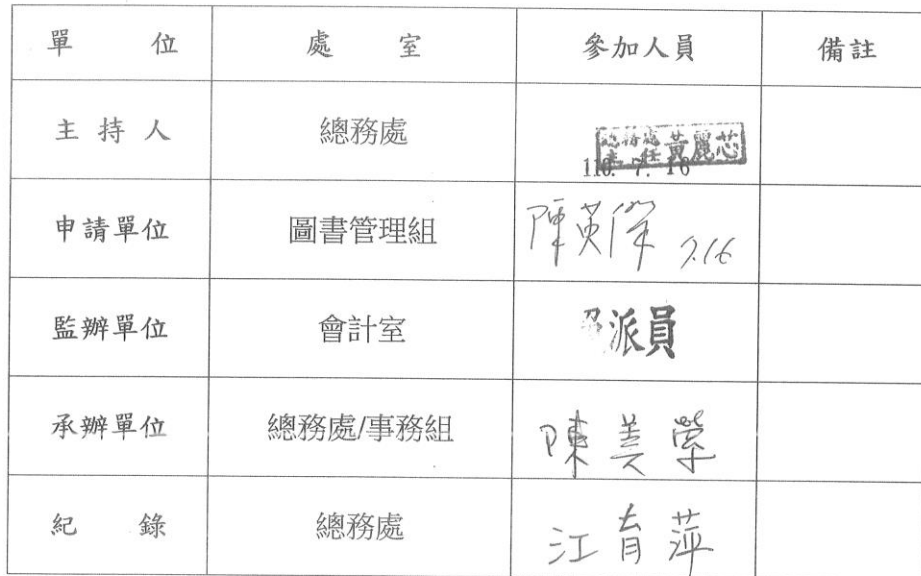 單 位 處 室 參加人員 備註
主 持 人 總務處 總務處
主 任 黃麗芯
110. 7. 16
申請單位 圖書管理組 陳英傑 7.16
監辦單位 會計室 派員
承辦單位 總務處/事務組 陳美瑩
紀 錄 總務處 江育萍